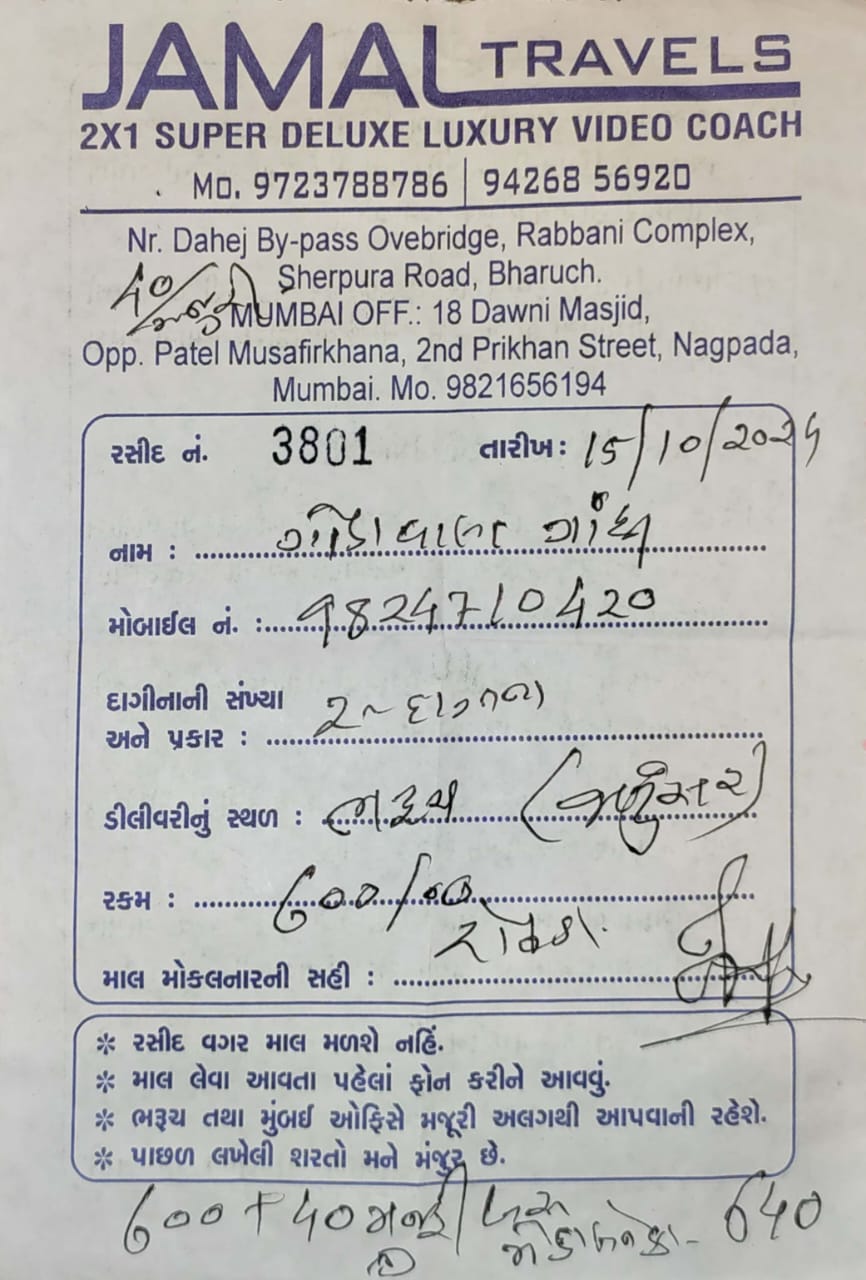 JAMAL TRAVELS
2X1 SUPER DELUXE LUXURY VIDEO COACH
Mo. 9723788786 | 94268 56920
Nr. Dahej By-pass Ovebridge, Rabbani Complex,
Sherpura Road, Bharuch.
40/ મજુરી
MUMBAI OFF.: 18 Dawni Masjid,
Opp. Patel Musafirkhana, 2nd Prikhan Street, Nagpada,
Mumbai. Mo. 9821656194
રસીદ નં. 3801 તારીખ: 15/10/2024
નામ :
મોબાઈલ નં. : 9824710420
દાગીનાની સંખ્યા
અને પ્રકાર : 2 ~ દાગીના
ડીલીવરીનું સ્થળ : ભરૂચ (જંબુસર)
રકમ : 600/00
રોકડા
માલ મોકલનારની સહી :
* રસીદ વગર માલ મળશે નહિં.
* માલ લેવા આવતા પહેલાં ફોન કરીને આવવું.
* ભરૂચ તથા મુંબઈ ઓફિસે મજૂરી અલગથી આપવાની રહેશે.
* પાછળ લખેલી શરતો મને મંજુર છે.
600 + 40 મજુરી 640